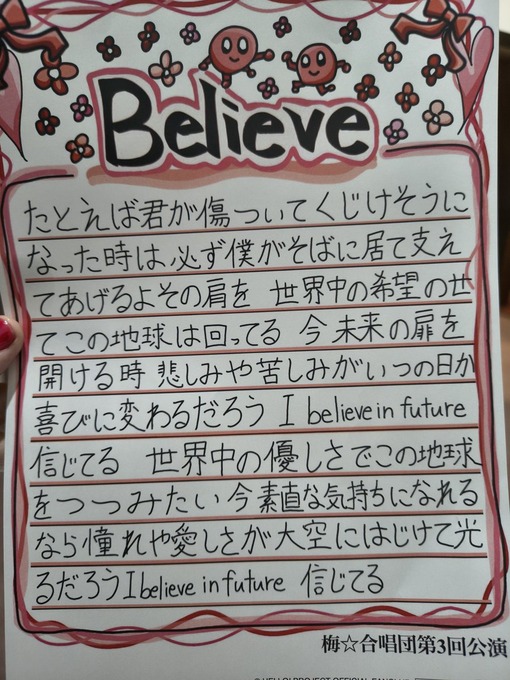 Believe
たとえば君が傷ついてくじけそうに
なった時は必ず僕がそばに居て支え
てあげるよその肩を 世界中の希望のせ
てこの地球は回ってる 今未来の扉を
開ける時 悲しみや苦しみがいつの日か
喜びに変わるだろう I believe in future
信じてる 世界中の優しさでこの地球
をつつみたい 今素直な気持ちになれる
なら憧れや愛しさが大空にはじけて光
るだろう I believe in future 信じてる
梅☆合唱団第3回公演